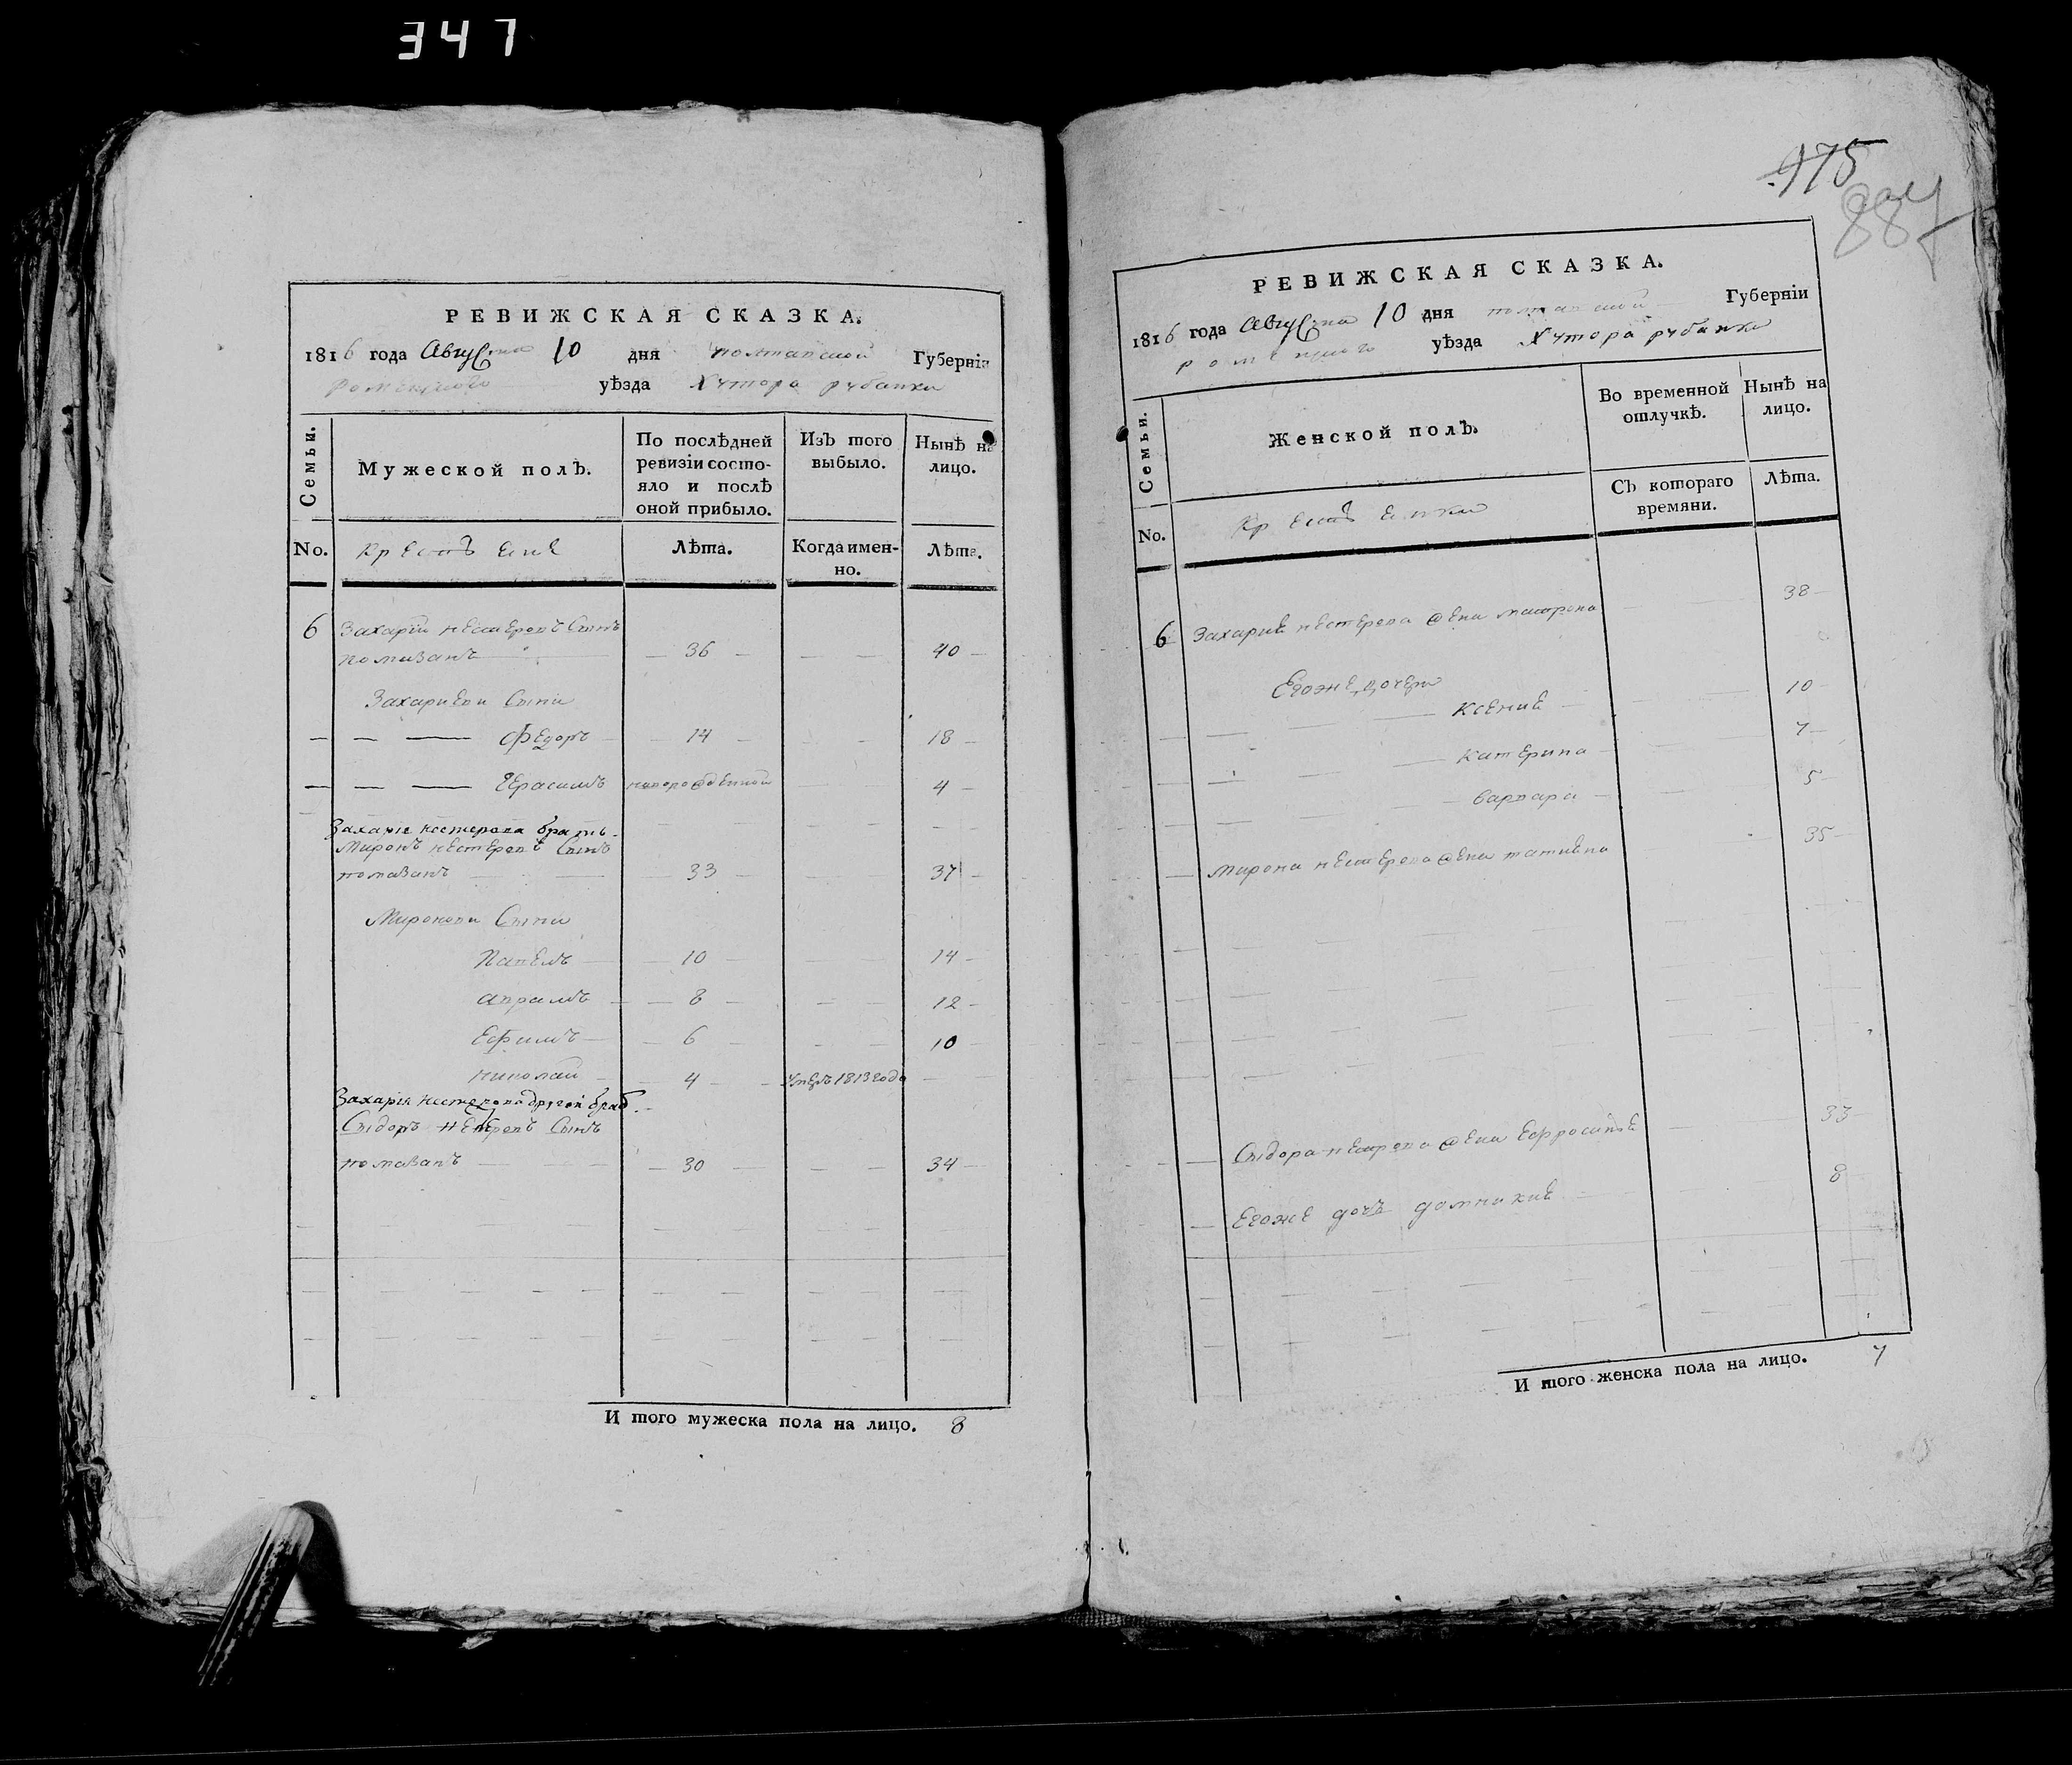 347
РЕВИЖСКАЯ СКАЗКА.
1816 года Августа 10 дня полтавской Губерніи
роменского уѣзда Хутора рубанки
Семьи.
Мужеской полъ.
По послѣдней ревизіи состо-
яло и послѣ
оной прибыло.
Изъ того
выбыло.
Нынѣ на
лицо.
No.
Крестъяне
Лѣта.
Когда имен-
но.
Лѣта.
6 Захарій нестеровъ Сынъ
36 40
Захариеви Сыни
Федоръ 14 18
Герасимъ новорожденной 4
Захарія нестерова братъ
Миронъ нестеровъ Сынъ
33 37
Миронови Сыни
Павелъ 10 14
аврамъ 8 12
Ефимъ 6 10
николай 4 умеръ 1813 года
Захарія нестерова другой братъ
Сыдоръ нестеровъ Сынъ
30 34
И того мужеска пола на лицо. 8
975
887
РЕВИЖСКАЯ СКАЗКА.
1816 года Августа 10 дня полтавской Губерніи
роменского уѣзда Хутора рубанки
Семьи.
Женской полъ.
Во временной
отлучкѣ.
Нынѣ на
лицо.
No.
Крестъянки
Съ котораго
времяни.
Лѣта.
6 Захария нестерова жена матрона 38
Егоже дочери
Ксения 10
катерина 7
варвара 5
мирона нестерова жена татияна 35
Сыдора нестерова жена Ефросиния 33
Егоже дочь домникия 8
И того женска пола на лицо. 7